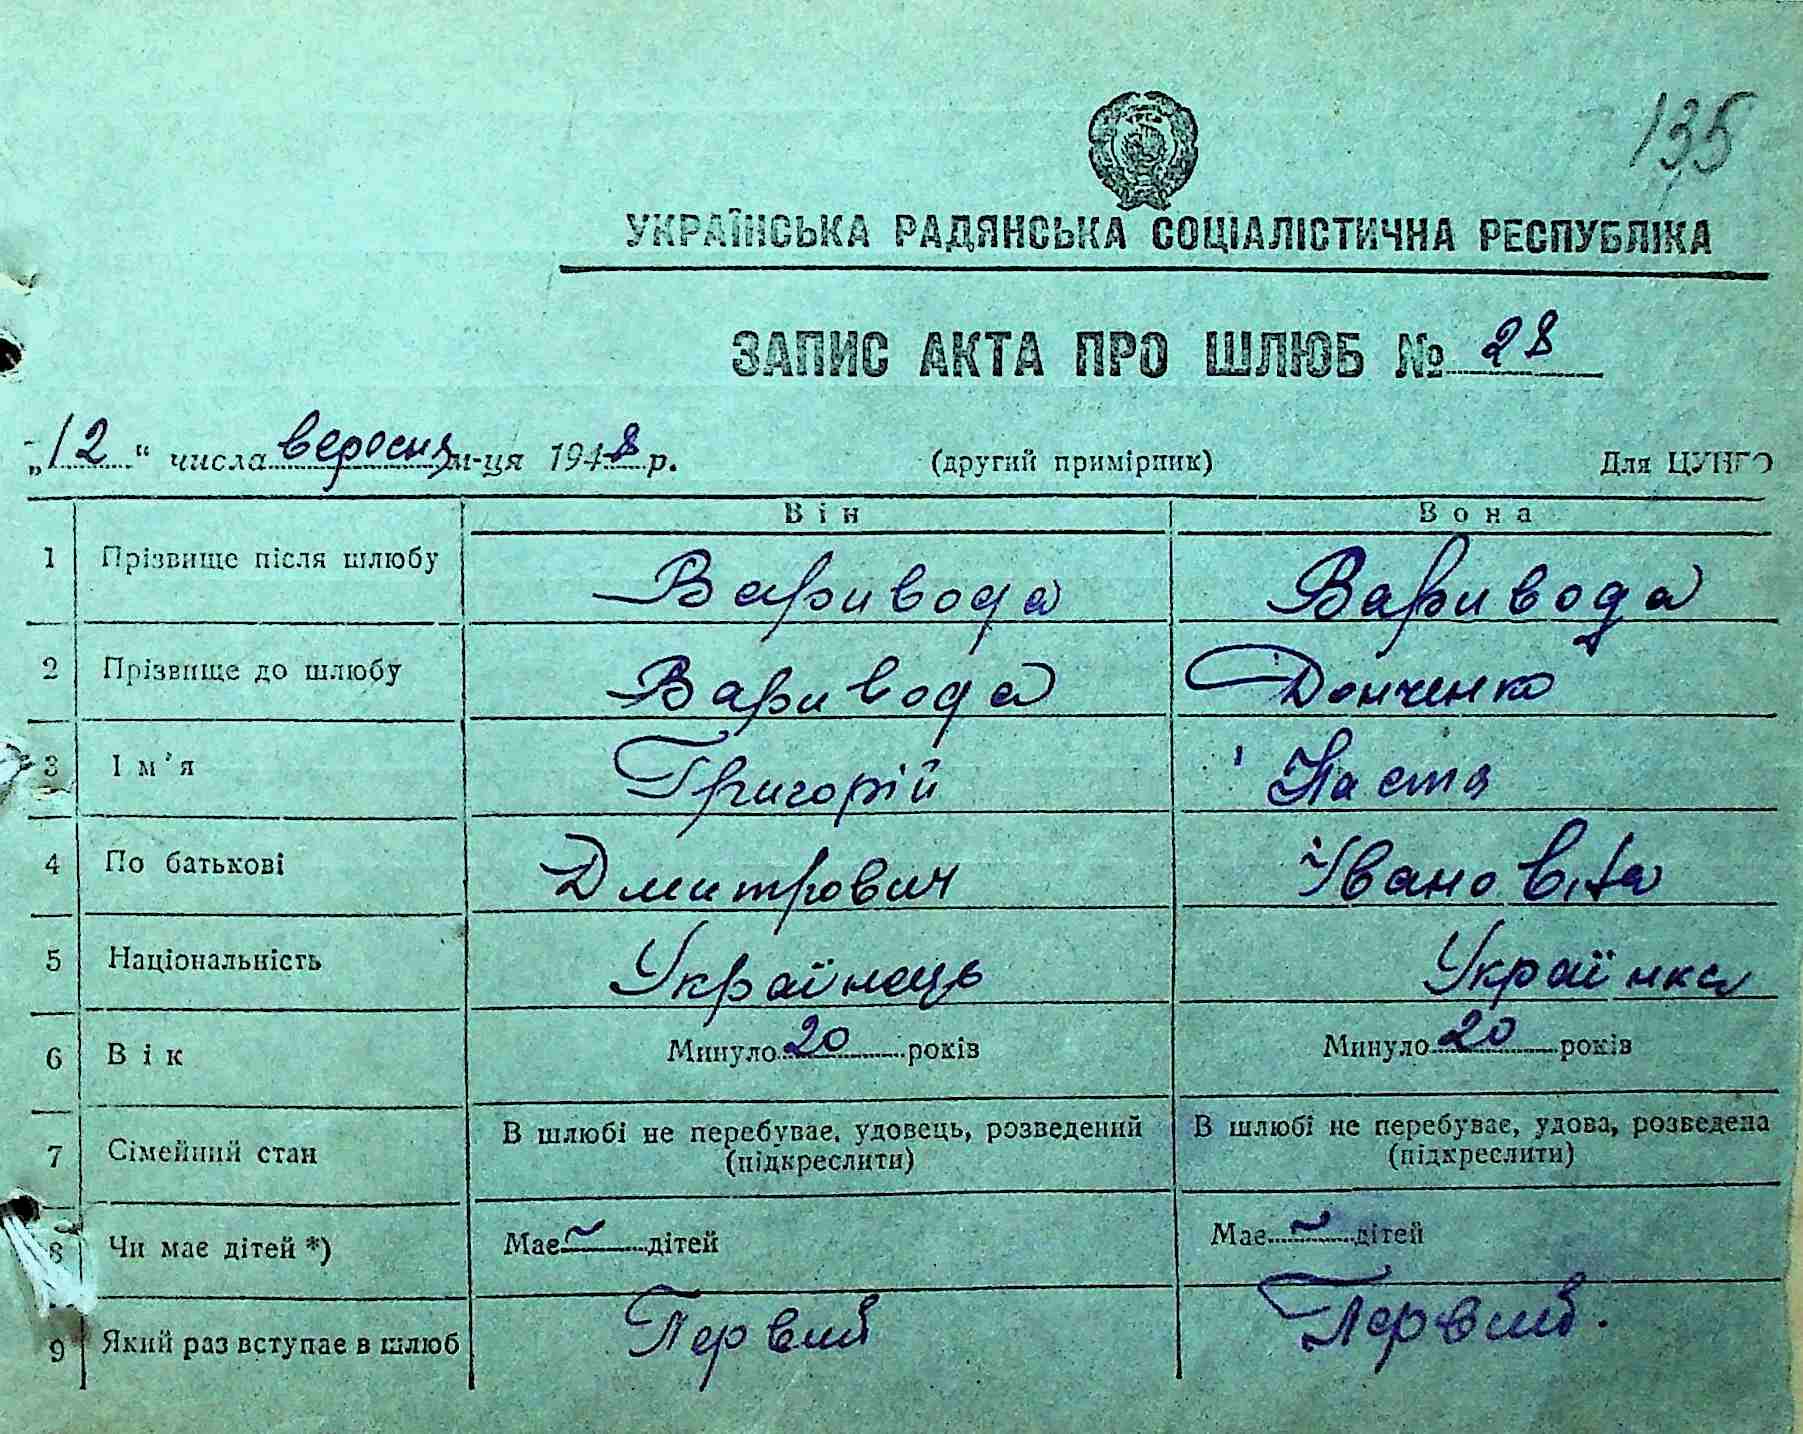 135
УКРАЇНСЬКА РАДЯНСЬКА СОЦІАЛІСТИЧНА РЕСПУБЛІКА
ЗАПИС АКТА ПРО ШЛЮБ № 28
„12“ числа вересня м-ця 1948 р. (другий примірник) Для ЦУНГО
Він Вона
1 Прізвище після шлюбу Варивода Варивода
2 Прізвище до шлюбу Варивода Донченко
3 Ім'я Григорій Настя
4 По батькові Дмитрович Івановна
5 Національність Українець Українка
6 Вік Минуло 20 років Минуло 20 років
7 Сімейний стан В шлюбі не перебуває, удовець, розведений В шлюбі не перебуває, удова, розведена
(підкреслити) (підкреслити)
8 Чи має дітей *) Має – дітей Має – дітей
9 Який раз вступає в шлюб Первий Первий.